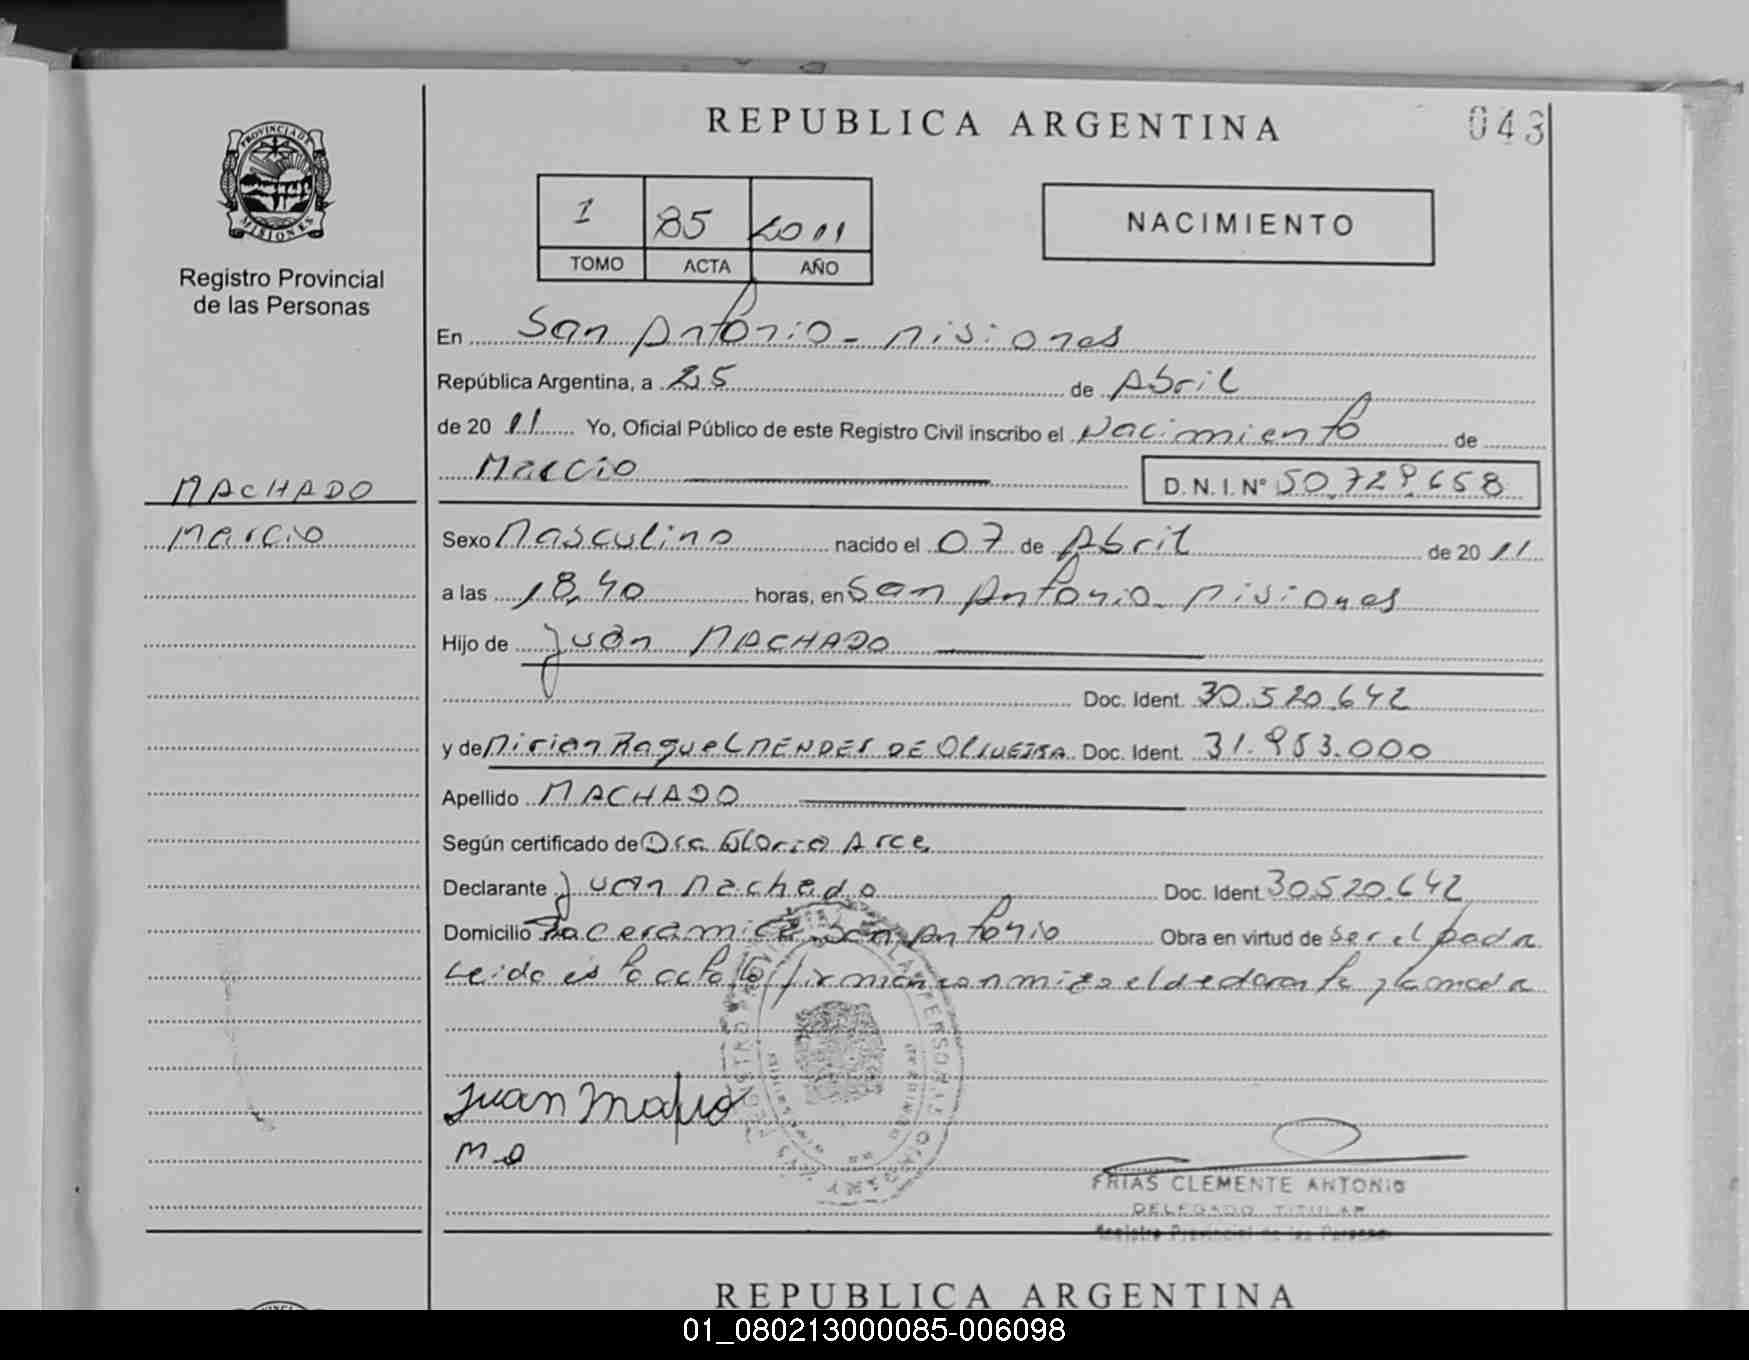 PROVINCIA DE
MISIONES
Registro Provincial
de las Personas
MACHADO
Marcio
REPUBLICA ARGENTINA
043
1 85 2011
TOMO ACTA AÑO
NACIMIENTO
En San Antonio - Misiones
República Argentina, a 25 de Abril
de 20 11 Yo, Oficial Público de este Registro Civil inscribo el Nacimiento de
Marcio D.N.I. Nº 50.729.658
Sexo Masculino nacido el 07 de Abril de 20 11
a las 18,40 horas, en San Antonio - Misiones
Hijo de Juan MACHADO
Doc. Ident. 30.520.642
y de Mirian Raquel MENDES DE OLIVEIRA Doc. Ident. 31.953.000
Apellido MACHADO
Según certificado de Dra Gloria Arce
Declarante Juan Machado Doc. Ident. 30.520.642
Domicilio Ba ceramica San Antonio Obra en virtud de ser el padre
Leida es la acta la firman conmigo el declarante y la madre
Juan
FRIAS CLEMENTE ANTONIO
DELEGADO TITULAR
Registro Provincial de las Personas
REPUBLICA ARGENTINA
01_080213000085-006098